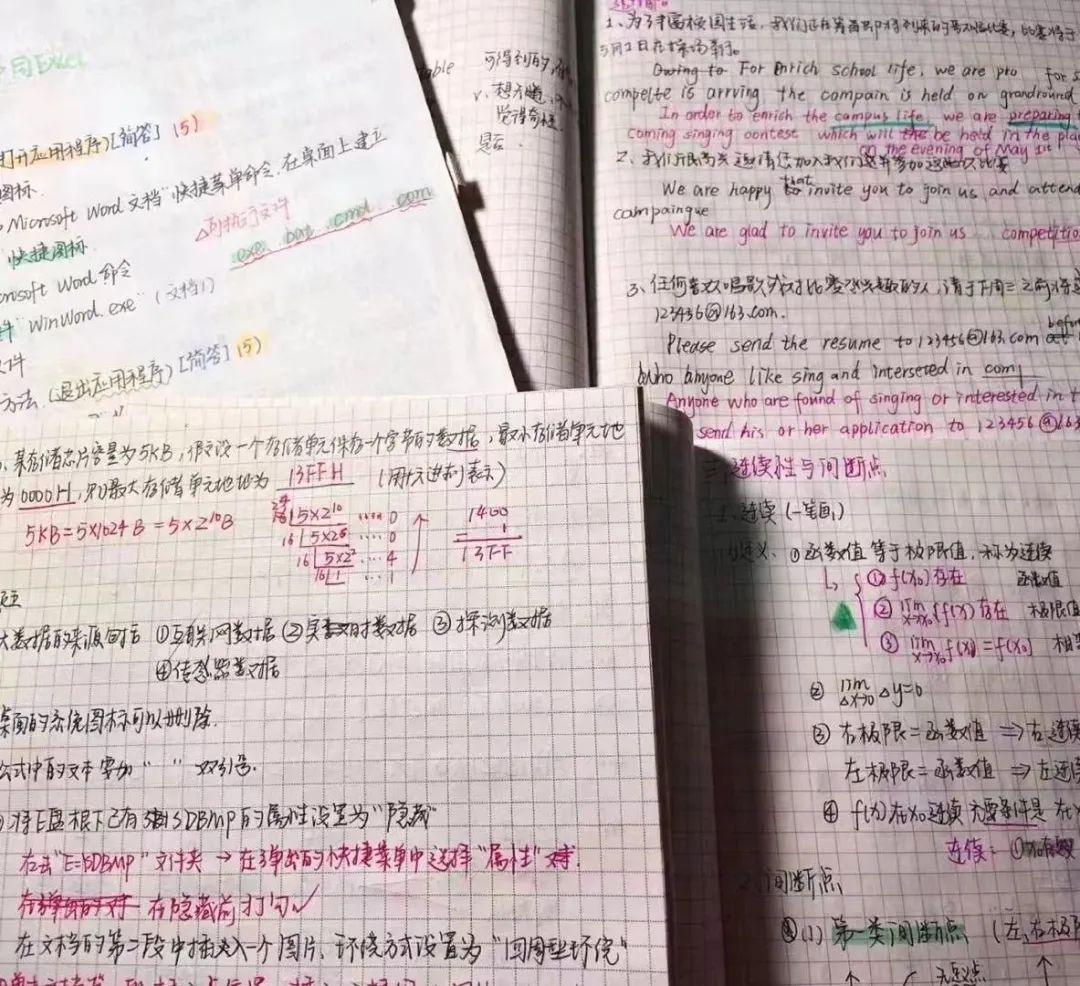 同Excel
打开应用程序)[简答](5)
图标.
Microsoft Word 文档"快捷菜单命令.在桌面上建立
快捷图标.
△可执行文件
.exe .bat .cmd .com
crosoft Word 命令
件"WinWord.exe"(文档1)
文件
方法.(退出应用程序)[简答](5)
able 可得到的,
v.想知道,
觉得奇怪.
1、为了丰富校园生活,我们正在筹备即将到来的歌唱比赛,比赛将于
5月1日在操场举行。
Owing to For Enrich school life, we are pro for s
compelte is arrving the compain is held on grandround
In order to enrich the campus life, we are preparing
coming singing contest which will the be held in the pla
on the evening of May 1st
2、我们很高兴邀请您加入我们
We are happy to that invite you to join us and attend
campaingue
We are glad to invite you to join us competitio
3、任何喜欢唱歌或对比赛感兴趣的人,请于下周三之前将
123456@163.com.
Please send the resume to 123456@163.com at before
who anyone like sing and interseted in com
Anyone who are found of singing or interested in t
send his or her application to 123456@163
三、连续性与间断点
1、连续(一笔画)
定义、①函数值等于极限值,称为连续
①f(x₀)存在 函数值
②lim x→x₀ f(x)存在 极限值
③lim x→x₀ f(x)=f(x₀) 相
② lim Δx→0 Δy=0
③ 右极限=函数值 ⇒右连续
左极限=函数值 ⇒左连续
④ f(x)在x₀连续 充要条件是 在x
连续:
2、间断点
(1)第一类间断点 (左、右极限
无定义点
某存储芯片容量为5KB,假设一个存储单元保存一个字节的数据,最小存储单元地
为0000H,则最大存储单元地址为 13FFH (用十六进制表示)
5KB=5×1024B=5×2¹⁰B
16 5×2¹⁰ ····0
16 5×2⁶ ····0
16 5×2² ····4
16 1 ···1
1400
- 1
13FF
大数据的来源包括 ①互联网数据 ②实时数据 ③探测数据
④传感器数据
桌面的系统图标可以删除.
公式中的文本要加" "双引号.
将E盘根下已有 SDBMP的属性设置为"隐藏"
右击"E=SDBMP"文件夹 → 在弹出的快捷菜单中选择"属性"
在隐藏前打勾✓
在文档的第二段中插入一个图片、环绕方式设置为"四周型环绕"